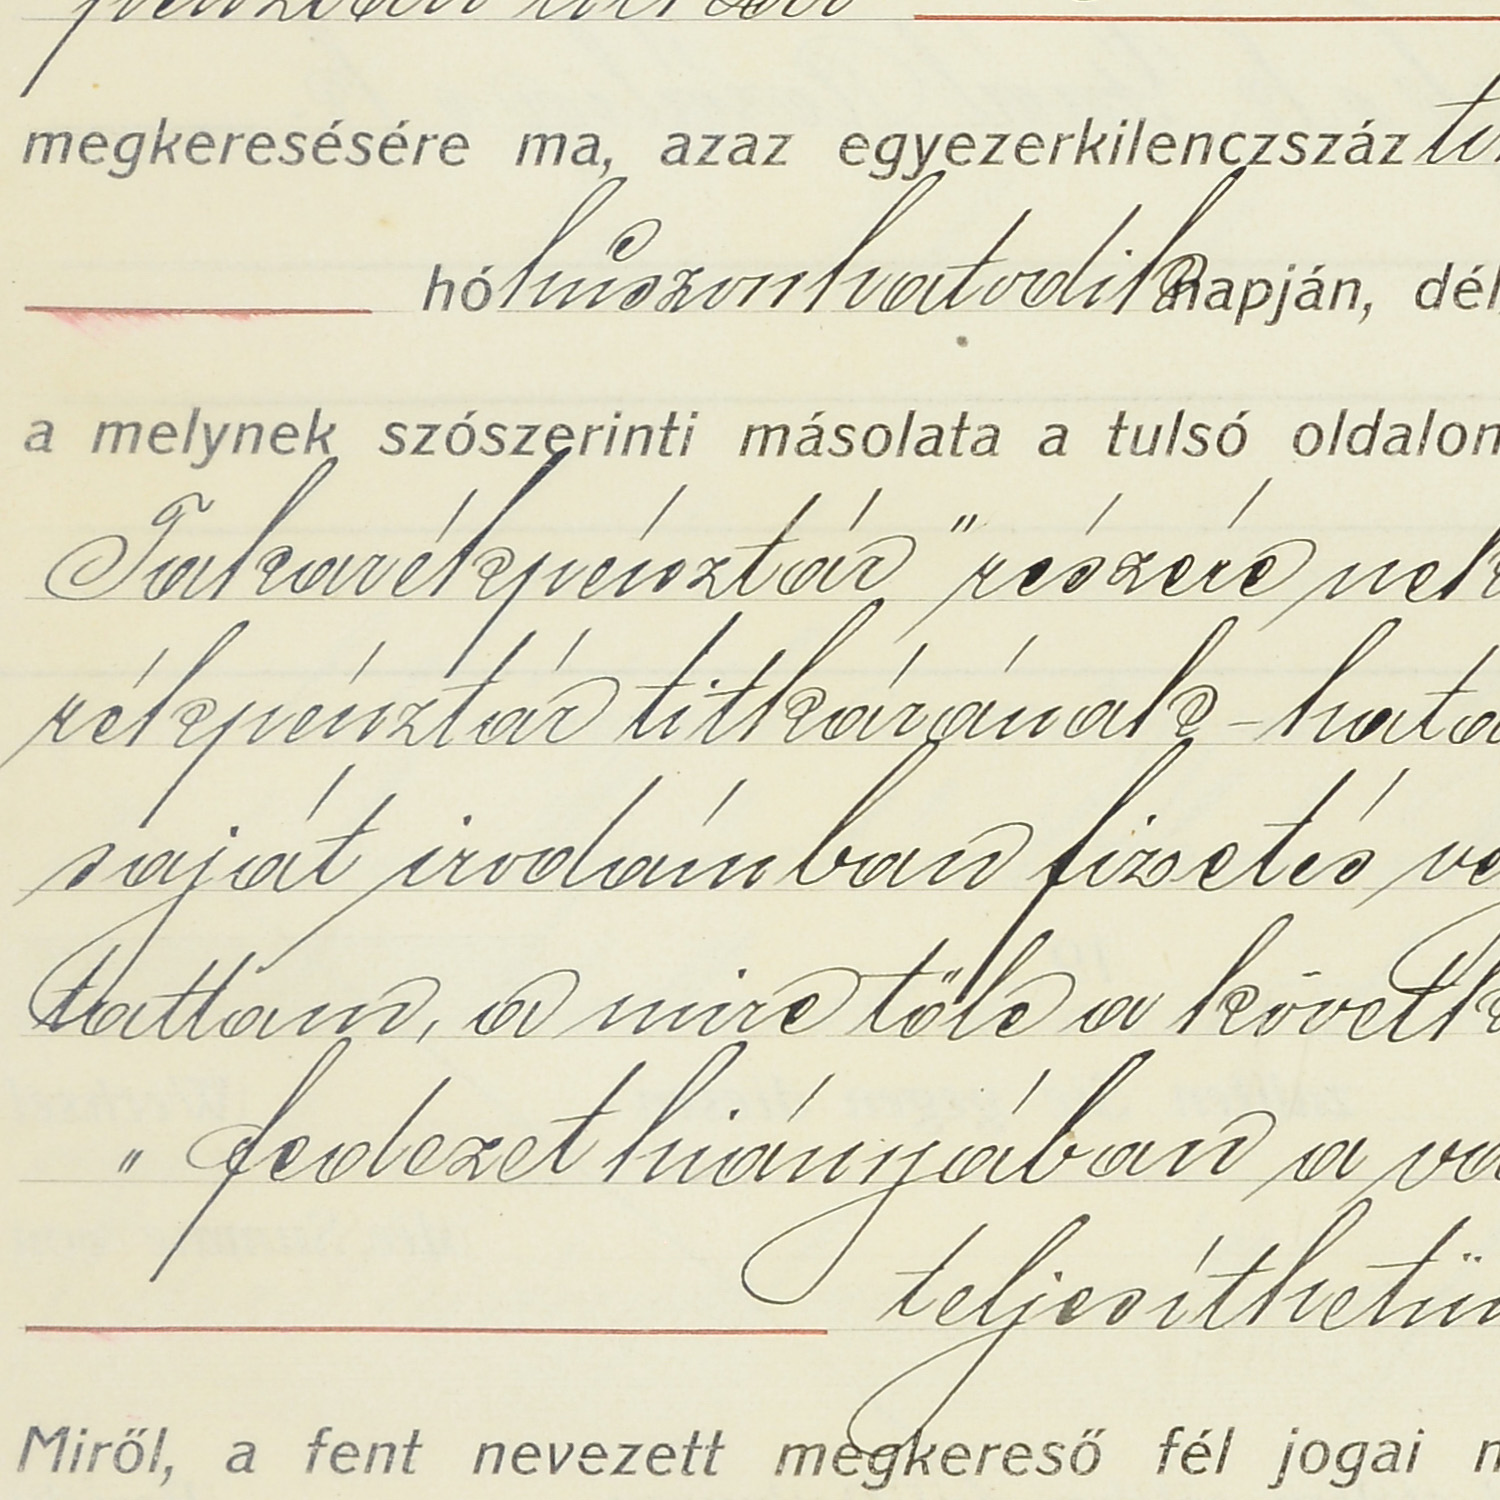 megkeresésére ma, azaz egyezerkilenczszáz
hó huszonhatodik napján, dél
a melynek szószerinti másolata a tulsó oldalon
Takarékpénztár" részére nek
rékpénztár titkárának - hata
saját irodámban fizetés ve
tattam, a mire tőle a követk
" fedezet hiányában a vá
teljesíthetün
Miről, a fent nevezett megkereső fél jogai